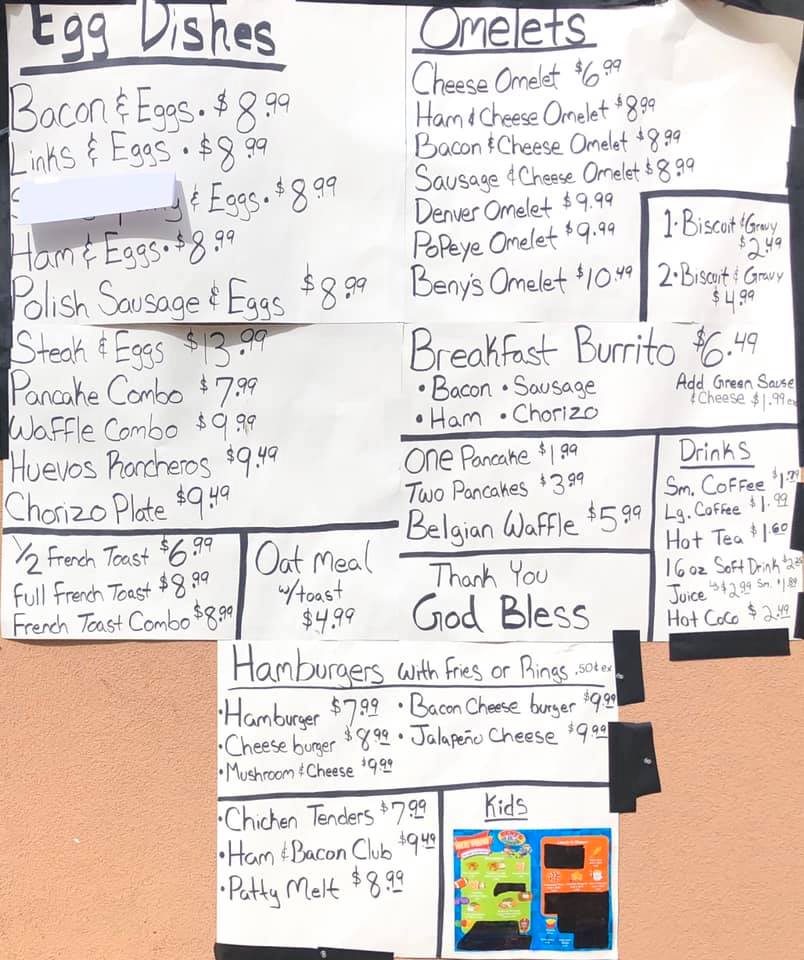 Egg Dishes
Bacon & Eggs. $8.99
Links & Eggs. $8.99
& Eggs. $8.99
Ham & Eggs. $8.99
Polish Sausage & Eggs $8.99
Steak & Eggs $13.99
Pancake Combo $7.99
Waffle Combo $9.99
Huevos Rancheros $9.49
Chorizo Plate $9.49
1/2 French Toast $6.99
Full French Toast $8.99
French Toast Combo $8.99
Oat Meal
w/toast
$4.99
Omelets
Cheese Omelet $6.99
Ham & Cheese Omelet $8.99
Bacon & Cheese Omelet $8.99
Sausage & Cheese Omelet $8.99
Denver Omelet $9.99
Popeye Omelet $9.99
Beny's Omelet $10.49
1. Biscuit & Gravy
$2.49
2. Biscuit & Gravy
$4.99
Breakfast Burrito $6.49
• Bacon • Sausage
• Ham • Chorizo
Add Green Sause
& Cheese $1.99
One Pancake $1.99
Two Pancakes $3.99
Belgian Waffle $5.99
Thank You
God Bless
Drinks
Sm. Coffee
Lg. Coffee $1.99
Hot Tea $1.60
16 oz Soft Drink
Juice $2.99 Sm.
Hot Coco $2.49
Hamburgers with Fries or Rings .50¢ ex
• Hamburger $7.99
• Cheese burger $8.99
• Mushroom & Cheese $9.99
• Bacon Cheese burger $9.99
• Jalapeño Cheese $9.99
• Chicken Tenders $7.99
• Ham & Bacon Club $9.49
• Patty Melt $8.99
Kids